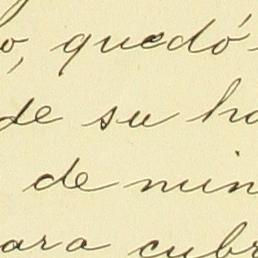 o, quedó
de su ha
de nin
ara cubr